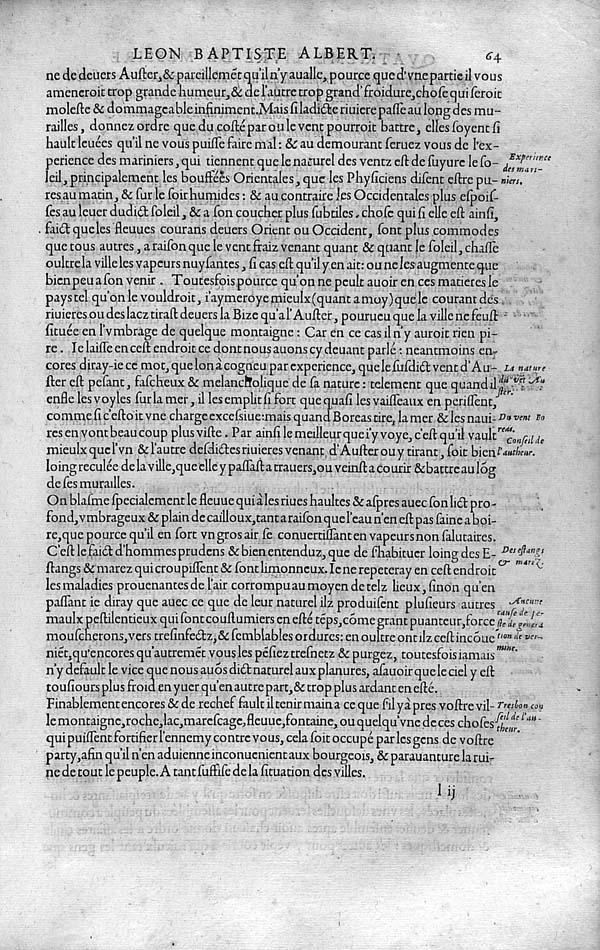 LEON BAPTISTE ALBERT. 64
ne de deuers Auſter, & pareillemẽt qu'il n'y aualle, pource que d'vne partie il vous
ameneroit trop grande humeur, & de l'autre trop grand' froidure, choſe qui ſeroit
moleſte & dommageable infiniment. Mais ſi ladicte riuiere paſſe au long des mu-
railles, donnez ordre que du coſté par ou le vent pourroit battre, elles ſoyent ſi
hault leuées qu'il ne vous puiſſe faire mal: & au demourant ſeruez vous de l'ex-
perience des mariniers, qui tiennent que le naturel des ventz eſt de ſuyure le ſo-
Experience
des mari-
niers.
leil, principalement les bouffées Orientales, que les Phyſiciens diſent eſtre pu-
res au matin, & ſur le ſoir humides: & au contraire les Occidentales plus eſpoiſ-
ſes au leuer dudict ſoleil, & a ſon coucher plus ſubtiles. choſe qui ſi elle eſt ainſi,
faict que les fleuues courans deuers Orient ou Occident, ſont plus commodes
que tous autres, a raiſon que le vent fraiz venant quant & quant le ſoleil, chaſſe
oultre la ville les vapeurs nuyſantes, ſi cas eſt qu'il y en ait: ou ne les augmente que
bien peu a ſon venir. Toutesfois pource qu'on ne peult auoir en ces matieres le
pays tel qu'on le vouldroit, i'aymeroye mieulx (quant a moy) que le courant des
riuieres ou des lacz tiraſt deuers la Bize qu'a l'Auſter, pourueu que la ville ne feuſt
ſituée en l'vmbrage de quelque montaigne: Car en ce cas il n'y auroit rien pi-
re. Ie laiſſe en ceſt endroit ce dont nous auons cy deuant parlé: neantmoins en-
cores diray-ie ce mot, que lon à cogneu par experience, que le ſuſdict vent d'Au-
La nature
du vẽt Au
ſter.
ſter eſt peſant, faſcheux & melancholique de ſa nature: telement que quand il
enfle les voyles ſur la mer, il les emplit ſi fort que quaſi les vaiſſeaux en periſſent,
comme ſi c'eſtoit vne charge exceſsiue: mais quand Boreas tire, la mer & les naui-
Du vent Bo
reas.
res en vont beaucoup plus viſte. Par ainſi le meilleur que i'y voye, c'eſt qu'il vault
Conſeil de
l'autheur.
mieulx que l'vn & l'autre deſdictes riuieres venant d'Auſter ou y tirant, ſoit bien
loing reculée de la ville, que elle y paſſaſt a trauers, ou veinſt a courir & battre au lõg
de ſes murailles.
On blaſme ſpecialement le fleuue qui à les riues haultes & aſpres auec ſon lict pro-
fond, vmbrageux & plain de cailloux, tant a raiſon que l'eau n'en eſt pas ſaine a boi-
re, que pource qu'il en ſort vn gros air ſe conuertiſſant en vapeurs non ſalutaires.
C'eſt le faict d'hommes prudens & bien entenduz, que de ſ'habituer loing des E-
Des eſtangs
& marez.
ſtangs & marez qui croupiſſent & ſont limonneux. Ie ne repeteray en ceſt endroit
les maladies prouenantes de l'air corrompu au moyen de telz lieux, ſinon qu'en
paſſant ie diray que auec ce que de leur naturel ilz produiſent pluſieurs autres
Aucune
cauſe de pe-
ſte & de genera
tion de ver-
mine.
maulx peſtilentieux qui ſont couſtumiers en eſté tẽps, cõme grant puanteur, force
mouſcherons, vers treſinfectz, & ſemblables ordures: en oultre ont ilz ceſt incõue
niẽt, qu'encores qu'autremẽt vous les pẽſiez treſnetz & purgez, toutesfois iamais
n'y default le vice que nous auõs dict naturel aux planures, aſauoir que le ciel y eſt
touſiours plus froid en yuer qu'en autre part, & trop plus ardant en eſté.
Finablement encores & de rechef fault il tenir main a ce que ſ'il y à pres voſtre vil-
Treſbon con
ſeil de l'au-
theur.
le montaigne, roche, lac, mareſcage, fleuue, fontaine, ou quelqu'vne de ces choſes
qui puiſſent fortifier l'ennemy contre vous, cela ſoit occupé par les gens de voſtre
party, afin qu'il n'en aduienne inconuenient aux bourgeois, & parauanture la rui-
ne de tout le peuple. A tant ſuffiſe de la ſituation des villes.
l ij